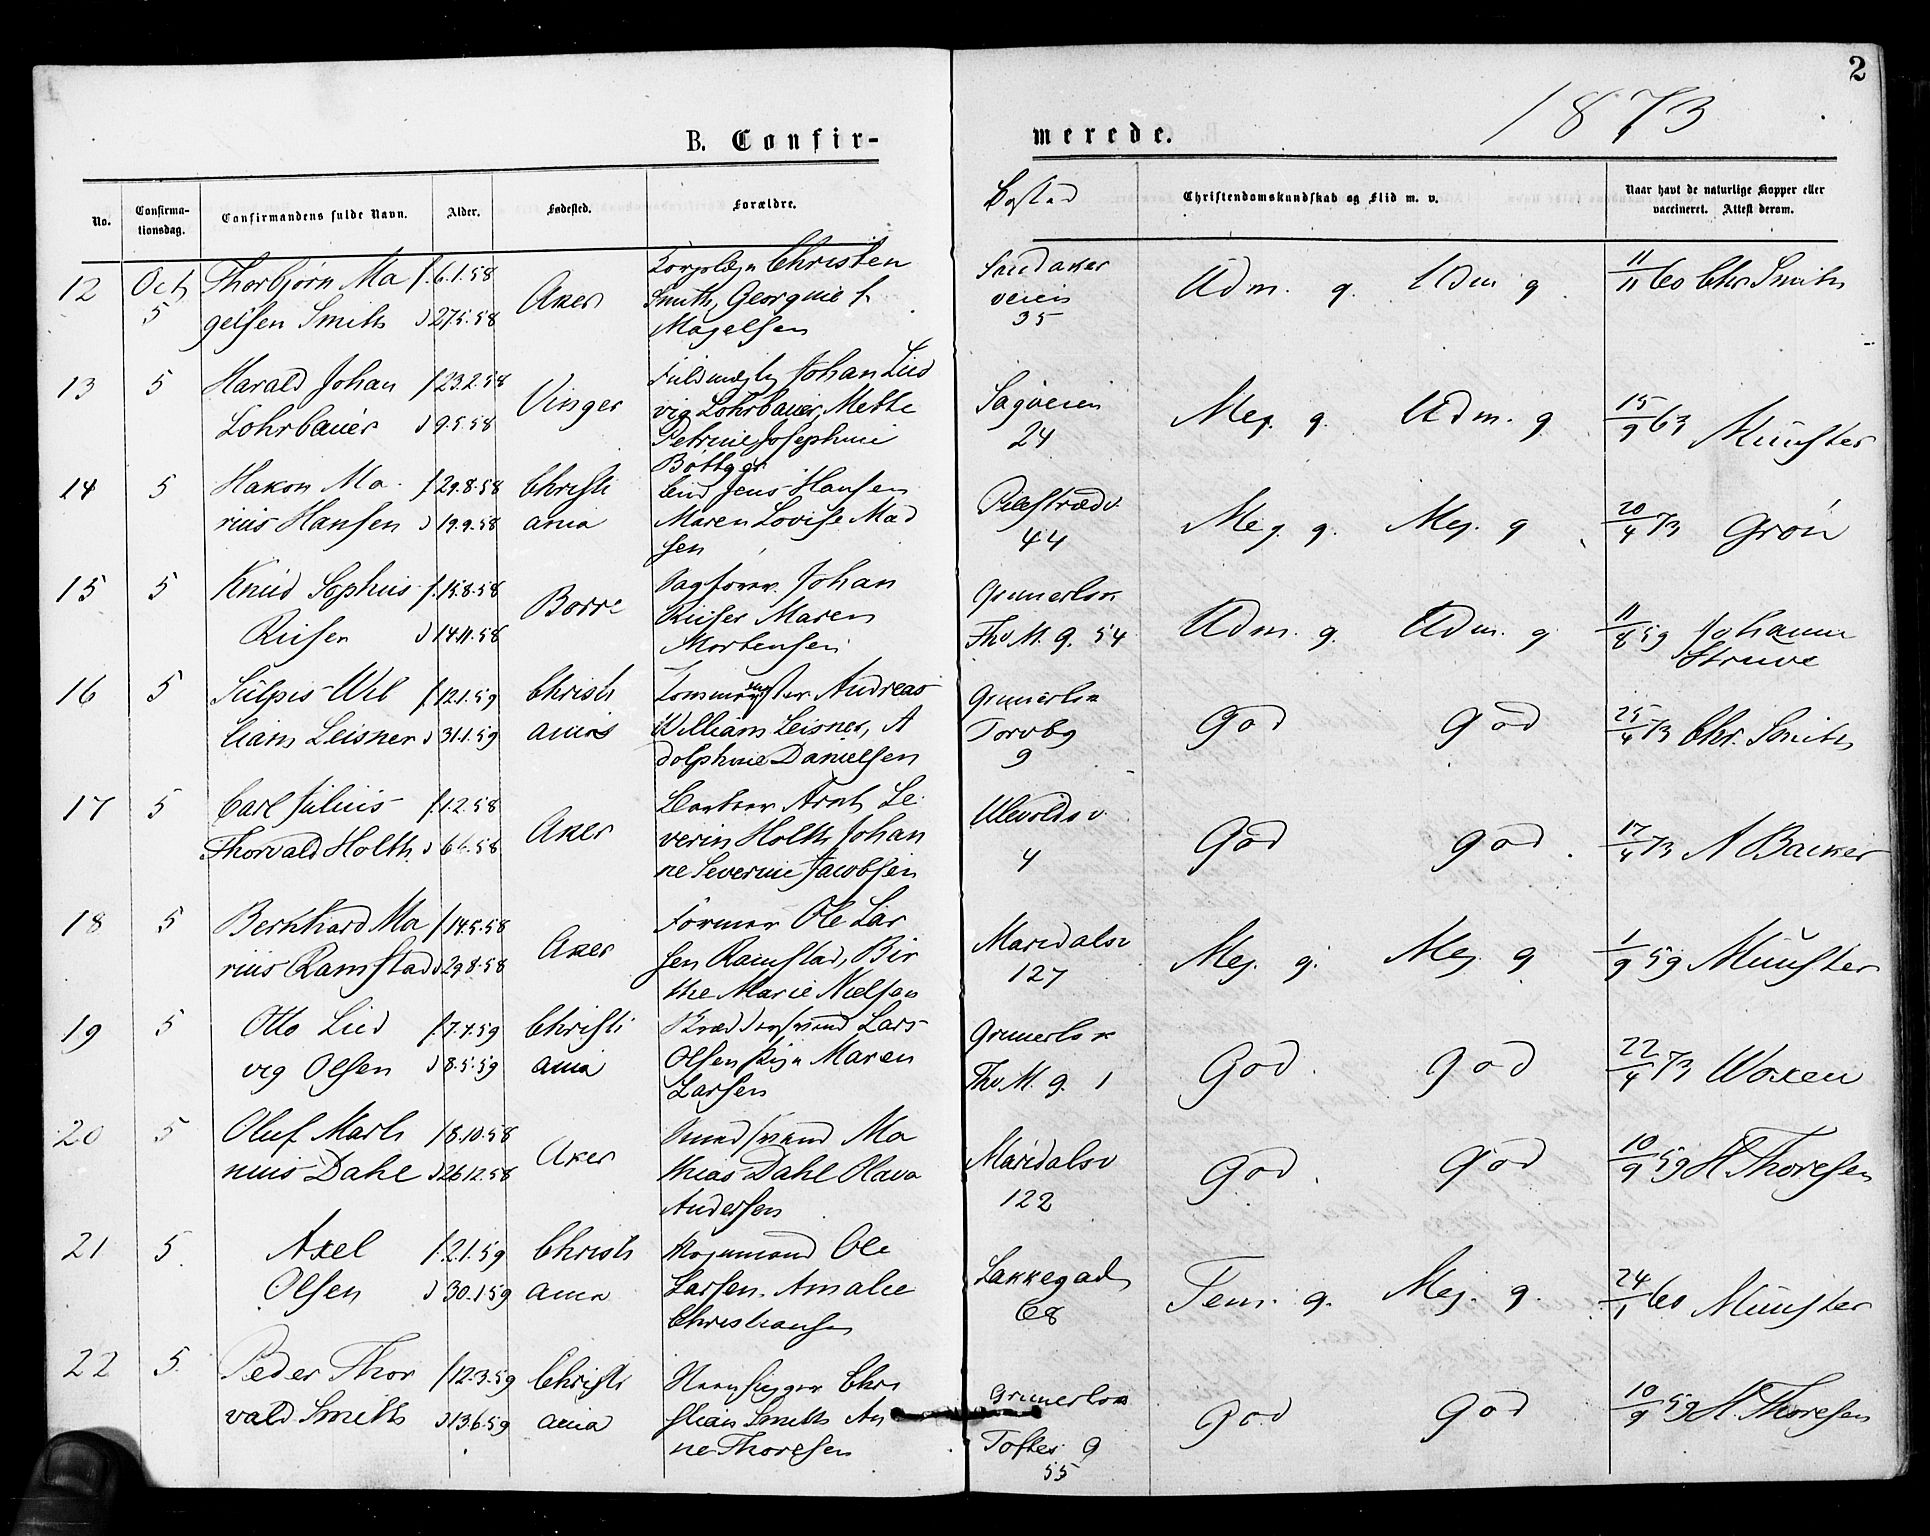 2
1873
B. Confir-
merede.
No.
Confirma-
tionsdag.
Confirmandens fulde Navn.
Alder.
Fødested.
Forældre.
Bosted
Christendomskundskab og Flid m. v.
Naar havt de naturlige Kopper eller
vaccineret. Attest derom.
12 Oct Thorbjørn Ma f. 6.1.58 Aker Christen Sandaker Udm. g. Udm g 11/11 60 Chr Smith
5 gelsen Smith d 27.5.58 Smith, Georgine veien
Magelsen 35
13 5 Harald Johan f 23.2.58 Vinger Johan Lud Sagveien Meg. g. Udm. g. 15/9 63 Münster
Lohrbauer d 9.5.58 vig Lohrbauer, Mette 24
Petrine Josephine
Böttger
14 5 Hakon Ma f 29.8.58 Christi Jens Hansen Pilestrædv Meg. g. Meg. g 20/4 73 Grøn
rius Hansen d 19.9.58 ania Maren Lovise Mad 44
sen
15 5 Knud Sophus f. 15.8.58 Borre Johan Grunerløk Udm. g. Udm. g 11/8 59 Johanne
Riiser d 14.11.58 Riiser Maren Thv M. g. 54 Struve
Mortensen
16 5 Sulpis Wil f. 12.1.59 Christi Andreas Grunerløk God God 25/4 73 Chr. Smith
liam Leisner d 31.1.59 ania William Leisner, A Torvbg
dolphine Danielsen 9
17 5 Carl Julius f. 1.2.58 Aker Arnt Se Ulevoldsv God God 17/4 73 A Backer
Thorvald Holth d 6.4.58 verin Holth Johan 4
ne Severine Jacobsen
18 5 Bernhard Ma f 14.5.58 Aker Former Ole Lar Maridalsv Meg. g. Meg. g 1/9 59 Münster
rius Ramstad d 29.8.58 sen Ramstad, Bir 127
the Marie Nielsen
19 5 Otto Lud f. 7.4.59 Christi Lars Grunerløk God. God 22/4 73 Woxen
vig Olsen d 8.5.59 ania Olsen Maren Thv M. g. 1
Larsen
20 5 Oluf Marti f 8.10.58 Aker Ma Maridalsv God. God 10/9 59 H Thoresen
nius Dahl d 26.12.58 thias Dahl Olava 122
Andersen
21 5. Axel f. 2.1.59 Christi Ole Lakkegad Tem. g. Meg. g. 24/1 60 Münster
Olsen d 30.1.59 ania Larsen. Amalie 68
Christiansen
22 5. Peder Thor f 12.3.59 Christi Chri Grunerløk God God 10/9 59 H. Thoresen
vald Smith d 13.6.59 ania stian Smith An Toftes g
ne Thoresen 55